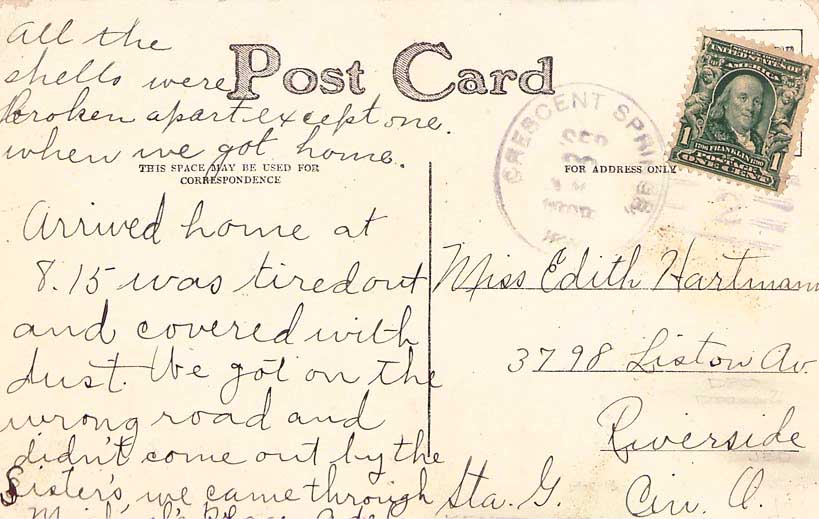 All the
shells were
Broken apart except one.
when we got home.
Post Card
THIS SPACE MAY BE USED FOR
CORRESPONDENCE
FOR ADDRESS ONLY
CRESCENT SPRINGS
SEP
3
UNITED STATES OF
AMERICA
1706 FRANKLIN 1790
POSTAGE
1 ONE CENT 1
Arrived home at
8.15 was tired out
and covered with
dust. We got on the
wrong road and
didn't come out by the
Sister's, we came through
Miss Edith Hartmann
3798 Liston Av.
Riverside
Sta. G. Cin. O.